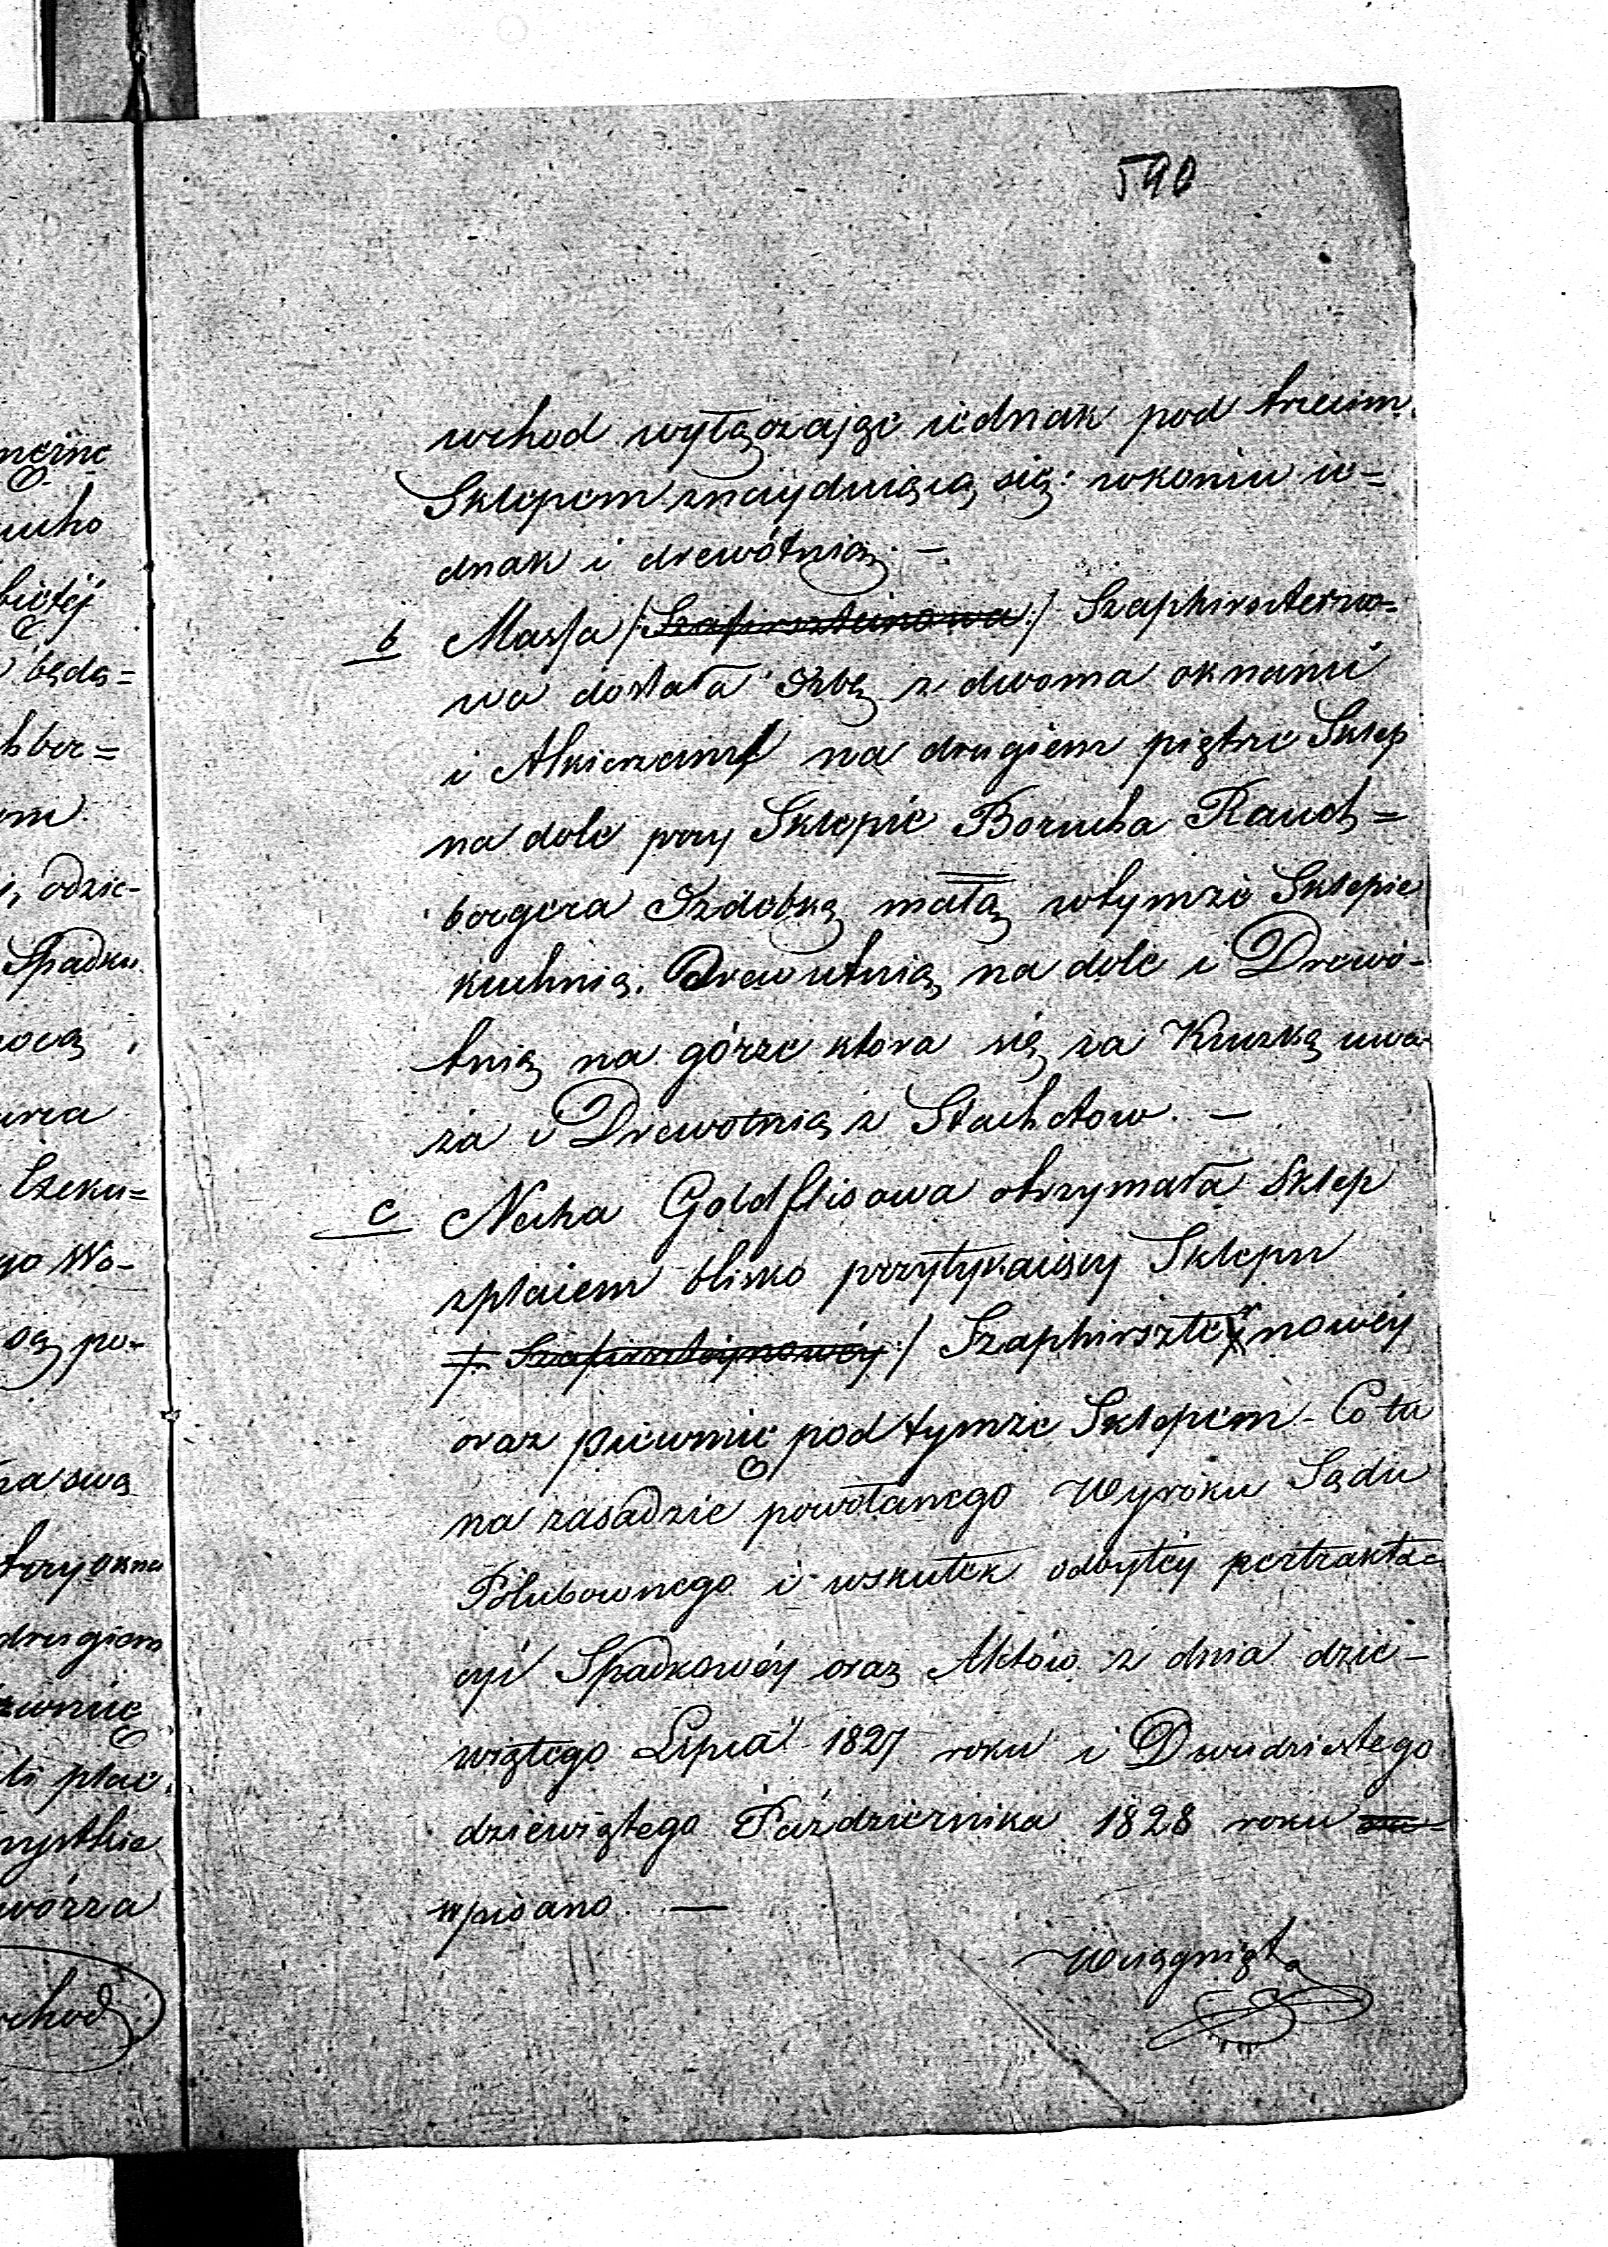 590
wchod wyłączając iednak pod trzecim
Sklepem znayduiącą się: wkońcu ie=
dnak i drewótnią. —
b Massa /: Szafirszteinowa :/ Szaphirsteino-
wa dostała Izbę z dwoma oknami
i Alkierzami na drugiem piętrze Sklep
na dole przy Sklepie Borucha Rauch=
bergera Izdebką małą wtymże Sklepie
kuchnią. Drewutnią na dole i Drewó-
tnią na górze ktora się za Kuczką uwa-
ża i Drewotnią z Stachetow. —
c Necha Goldflisowa otrzymała Sklep
zplacem blisko przytykaiący Sklepu
/: Szafirszteynowéy :/ Szaphirszteynowéy
oraz piewnicę pod tymże Sklepem - Co tu
na zasadzie powołanego Wyroku Sądu
Polubownego i wskutek odbytéy pertrakta=
cyi Spadkowéy oraz Aktów z dnia dzie-
wiątego Lipca 1827 roku i Dwudziestego
dziewiątego Października 1828 roku
wpisano. —
Wciągnięta
neinc
ucho
bietéj
będą=
hber=
om
odzie-
Spadku
Exeku=
go Wo-
są po-
trzy okna
drugiem
wnicę
plac
wszystkie
wórza
wchod